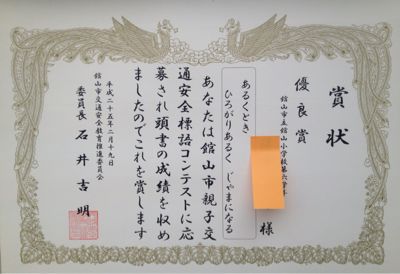 賞状
優良賞
館山市立館山小学校第六学年
様
あるくとき
ひろがりあるく じゃまになる
あなたは館山市親子交
通安全標語コンテストに応
募され頭書の成績を収め
ましたのでこれを賞します
平成二十五年二月十九日
館山市交通安全教育推進委員会
委員長 石井吉明